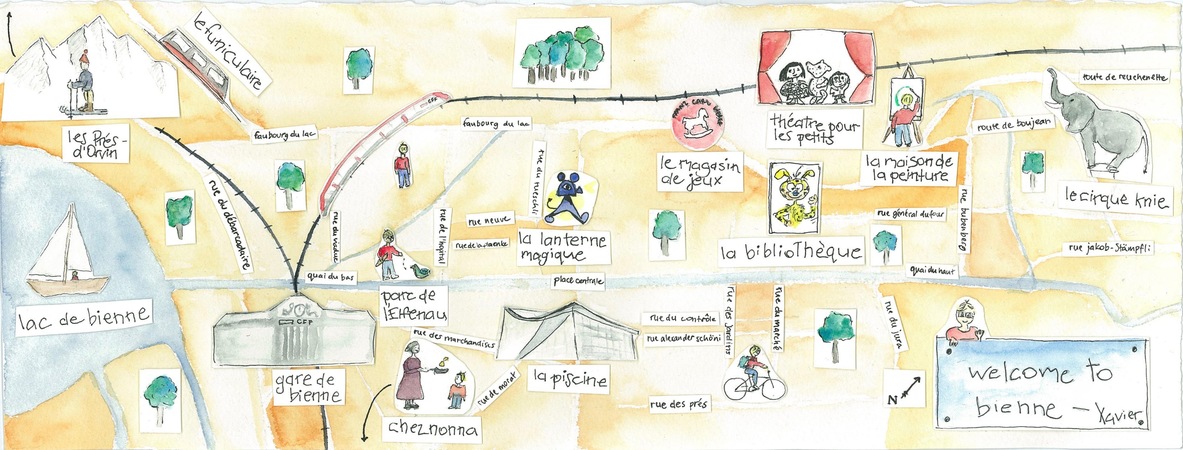 le funiculaire
les Prés-
d'Orvin
faubourg du lac
CFF
faubourg du lac
rue du débarcadaire
rue du viaduc
rue de l'hôpital
rue neuve
le magasin
de jeux
théâtre pour
les petits
la maison de
la peinture
route de reuchenette
route de boujean
le cirque knie
la lanterne
magique
la bibliothèque
rue général dufour
rue bubenberg
rue jakob-Stämpfli
quai du bas
quai du haut
place centrale
lac de bienne
parc de
l'Elfenau
CFF
gare de
bienne
rue des marchandises
rue de morat
cheznonna
la piscine
rue du contrôle
rue alexander schöni
rue des jardins
rue du marché
rue des prés
rue du jura
N
welcome to
bienne - Xavier